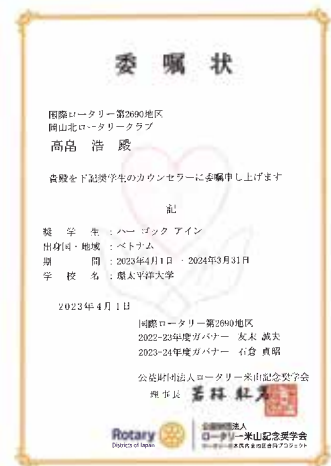 委嘱状
国際ロータリー第2690地区
岡山北ロータリークラブ
高畠 浩 殿
貴殿を下記奨学生のカウンセラーに委嘱申し上げます
記
奨学生:ハー ゴック アイン
出身国・地域:ベトナム
期間:2023年4月1日 - 2024年3月31日
学校名:環太平洋大学
2023年4月1日
国際ロータリー第2690地区
2022-23年度ガバナー 友末 誠夫
2023-24年度ガバナー 石倉 貞昭
公益財団法人ロータリー米山記念奨学会
理事長 若林
Rotary
Districts of Japan
公益財団法人
ロータリー米山記念奨学会